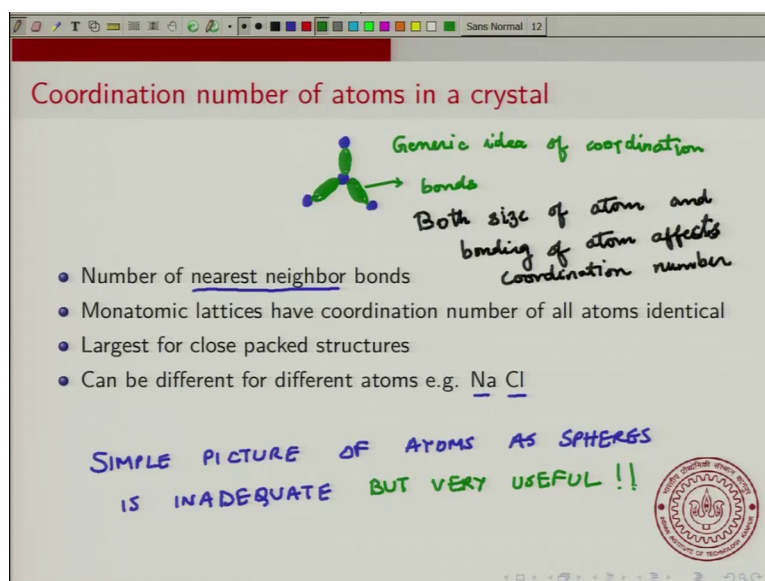 T
Sans Normal 12
Coordination number of atoms in a crystal
Generic idea of coordination
bonds
Both size of atom and
bonding of atom affects
coordination number
Number of nearest neighbor bonds
Monatomic lattices have coordination number of all atoms identical
Largest for close packed structures
Can be different for different atoms e.g. Na Cl
SIMPLE PICTURE OF ATOMS AS SPHERES
IS INADEQUATE BUT VERY USEFUL !!
INDIAN INSTITUTE OF TECHNOLOGY KANPUR